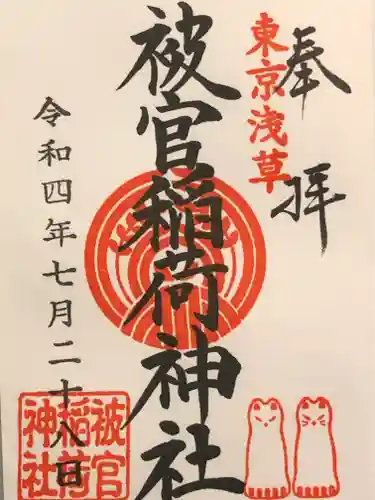 奉拝
東京浅草
被官稲荷神社
令和四年七月二十八日
被官
稲荷
神社